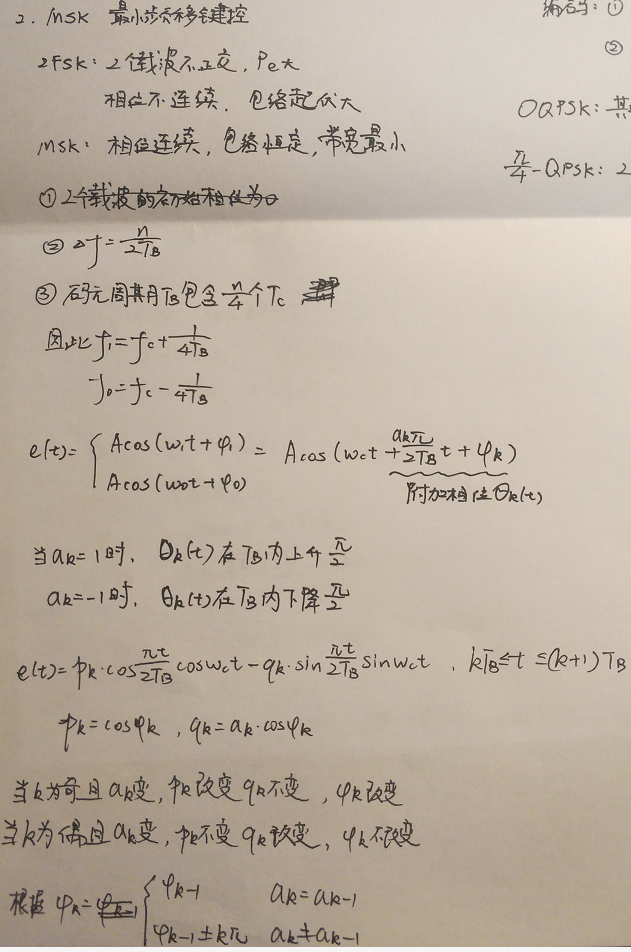 2. MSK 最小频移键控
2FSK: 2个载波不正交, Pe大
相位不连续, 包络起伏大
MSK: 相位连续, 包络恒定, 带宽最小
① 2个载波的初始相位为0
② Δf = n/2TB
③ 码元周期TB包含 n/4 个Tc
因此 f1 = fc + 1/4TB
f0 = fc - 1/4TB
e(t) = { Acos(w1t+φ1) = Acos(wct + akπ/2TB t + φk)
Acos(w0t+φ0)
附加相位θk(t)
当ak=1时, θk(t)在TB内上升π/2
ak=-1时, θk(t)在TB内下降π/2
e(t) = pk·cos πt/2TB coswct - qk·sin πt/2TB sinwct , kTB≤t≤(k+1)TB
pk = cosφk , qk = ak·cosφk
当k为奇且ak变, pk改变qk不变, φk改变
当k为偶且ak变, pk不变qk改变, φk不改变
根据 φk = { φk-1 ak=ak-1
φk-1±kπ ak≠ak-1
编码: ①
②
OQPSK: 其
π/4-QPSK: 2